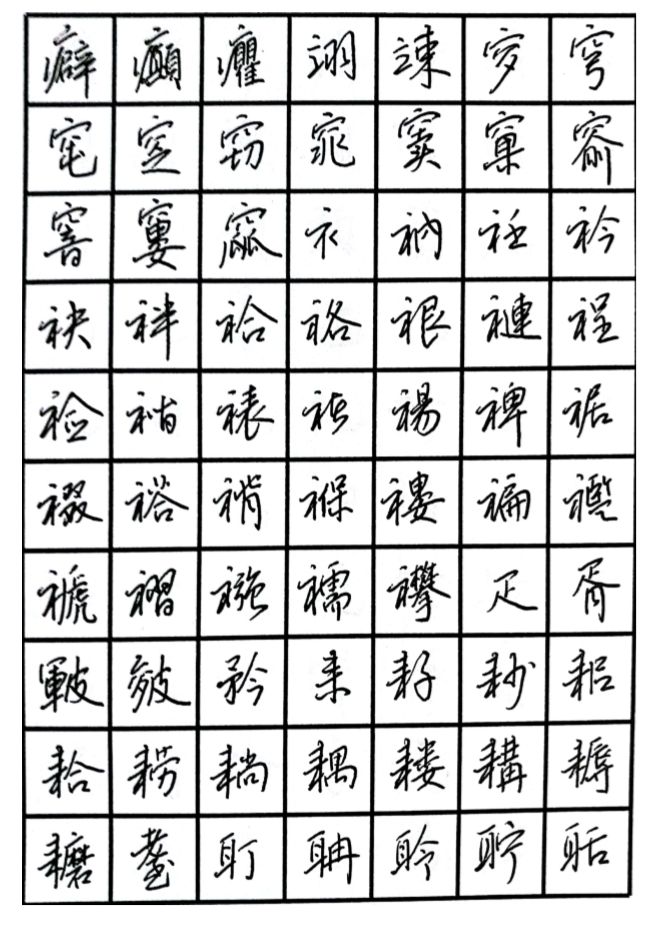 癖癫癯翊竦穸穹
窀窆窈窕窦窠窬
窨窶窳衤衲衽衿
袂袢袷袼裉褳裎
裣裥裱褚裼裨裾
裰褡褙褓褸褊褴
褫褶襁襦襻疋胥
皸皴矜耒耔耖耜
耠耢耥耦耬耩耨
耱耋耵聃聆聍聒